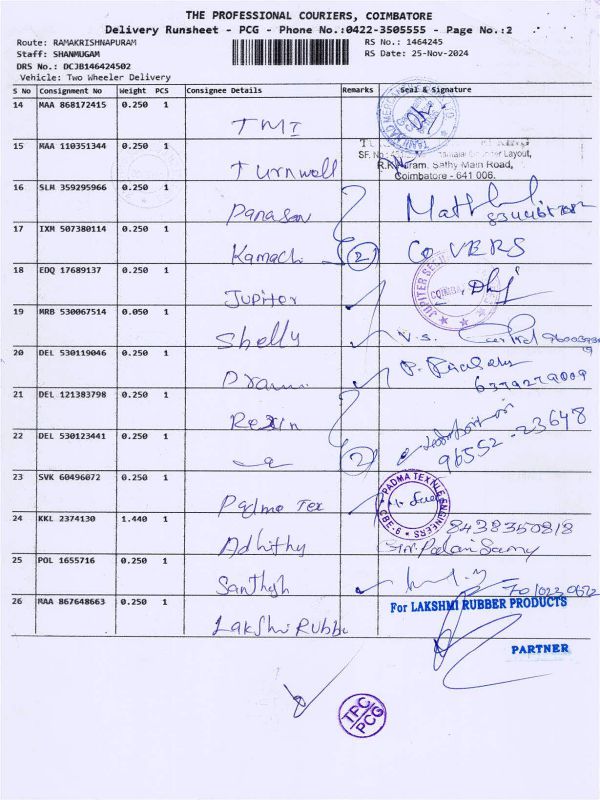 THE PROFESSIONAL COURIERS, COIMBATORE
Delivery Runsheet - PCG - Phone No.:0422-3505555 - Page No.:2
Route: RAMAKRISHNAPURAM RS No.: 1464245
Staff: SHANMUGAM RS Date: 25-Nov-2024
DRS No.: DCJB146424502
Vehicle: Two Wheeler Delivery
S No Consignment No Weight PCS Consignee Details Remarks Seal & Signature
14 MAA 868172415 0.250 1 TMI
15 MAA 110351344 0.250 1 Turnwell
Layout,
Sathy Main Road,
Coimbatore - 641 006.
16 SLM 359295966 0.250 1 Panason
17 IXM 507380114 0.250 1 Kamachi 2 COVERS
18 EDQ 17689137 0.250 1 Jupiter
19 MRB 530067514 0.050 1 Shelly V.S.
20 DEL 530119046 0.250 1 P.
6379279009
21 DEL 121383798 0.250 1 Rexin
96552-23648
22 DEL 530123441 0.250 1 2
23 SVK 60496072 0.250 1 Padma Tex
PADMA TEXTILE ENGINEERS CBE-6
24 KKL 2374130 1.440 1 Adhithy 8438350818
25 POL 1655716 0.250 1 Santhosh
26 MAA 867648663 0.250 1 Lakshi Rubbe
For LAKSHMI RUBBER PRODUCTS
PARTNER
TPC
PCG